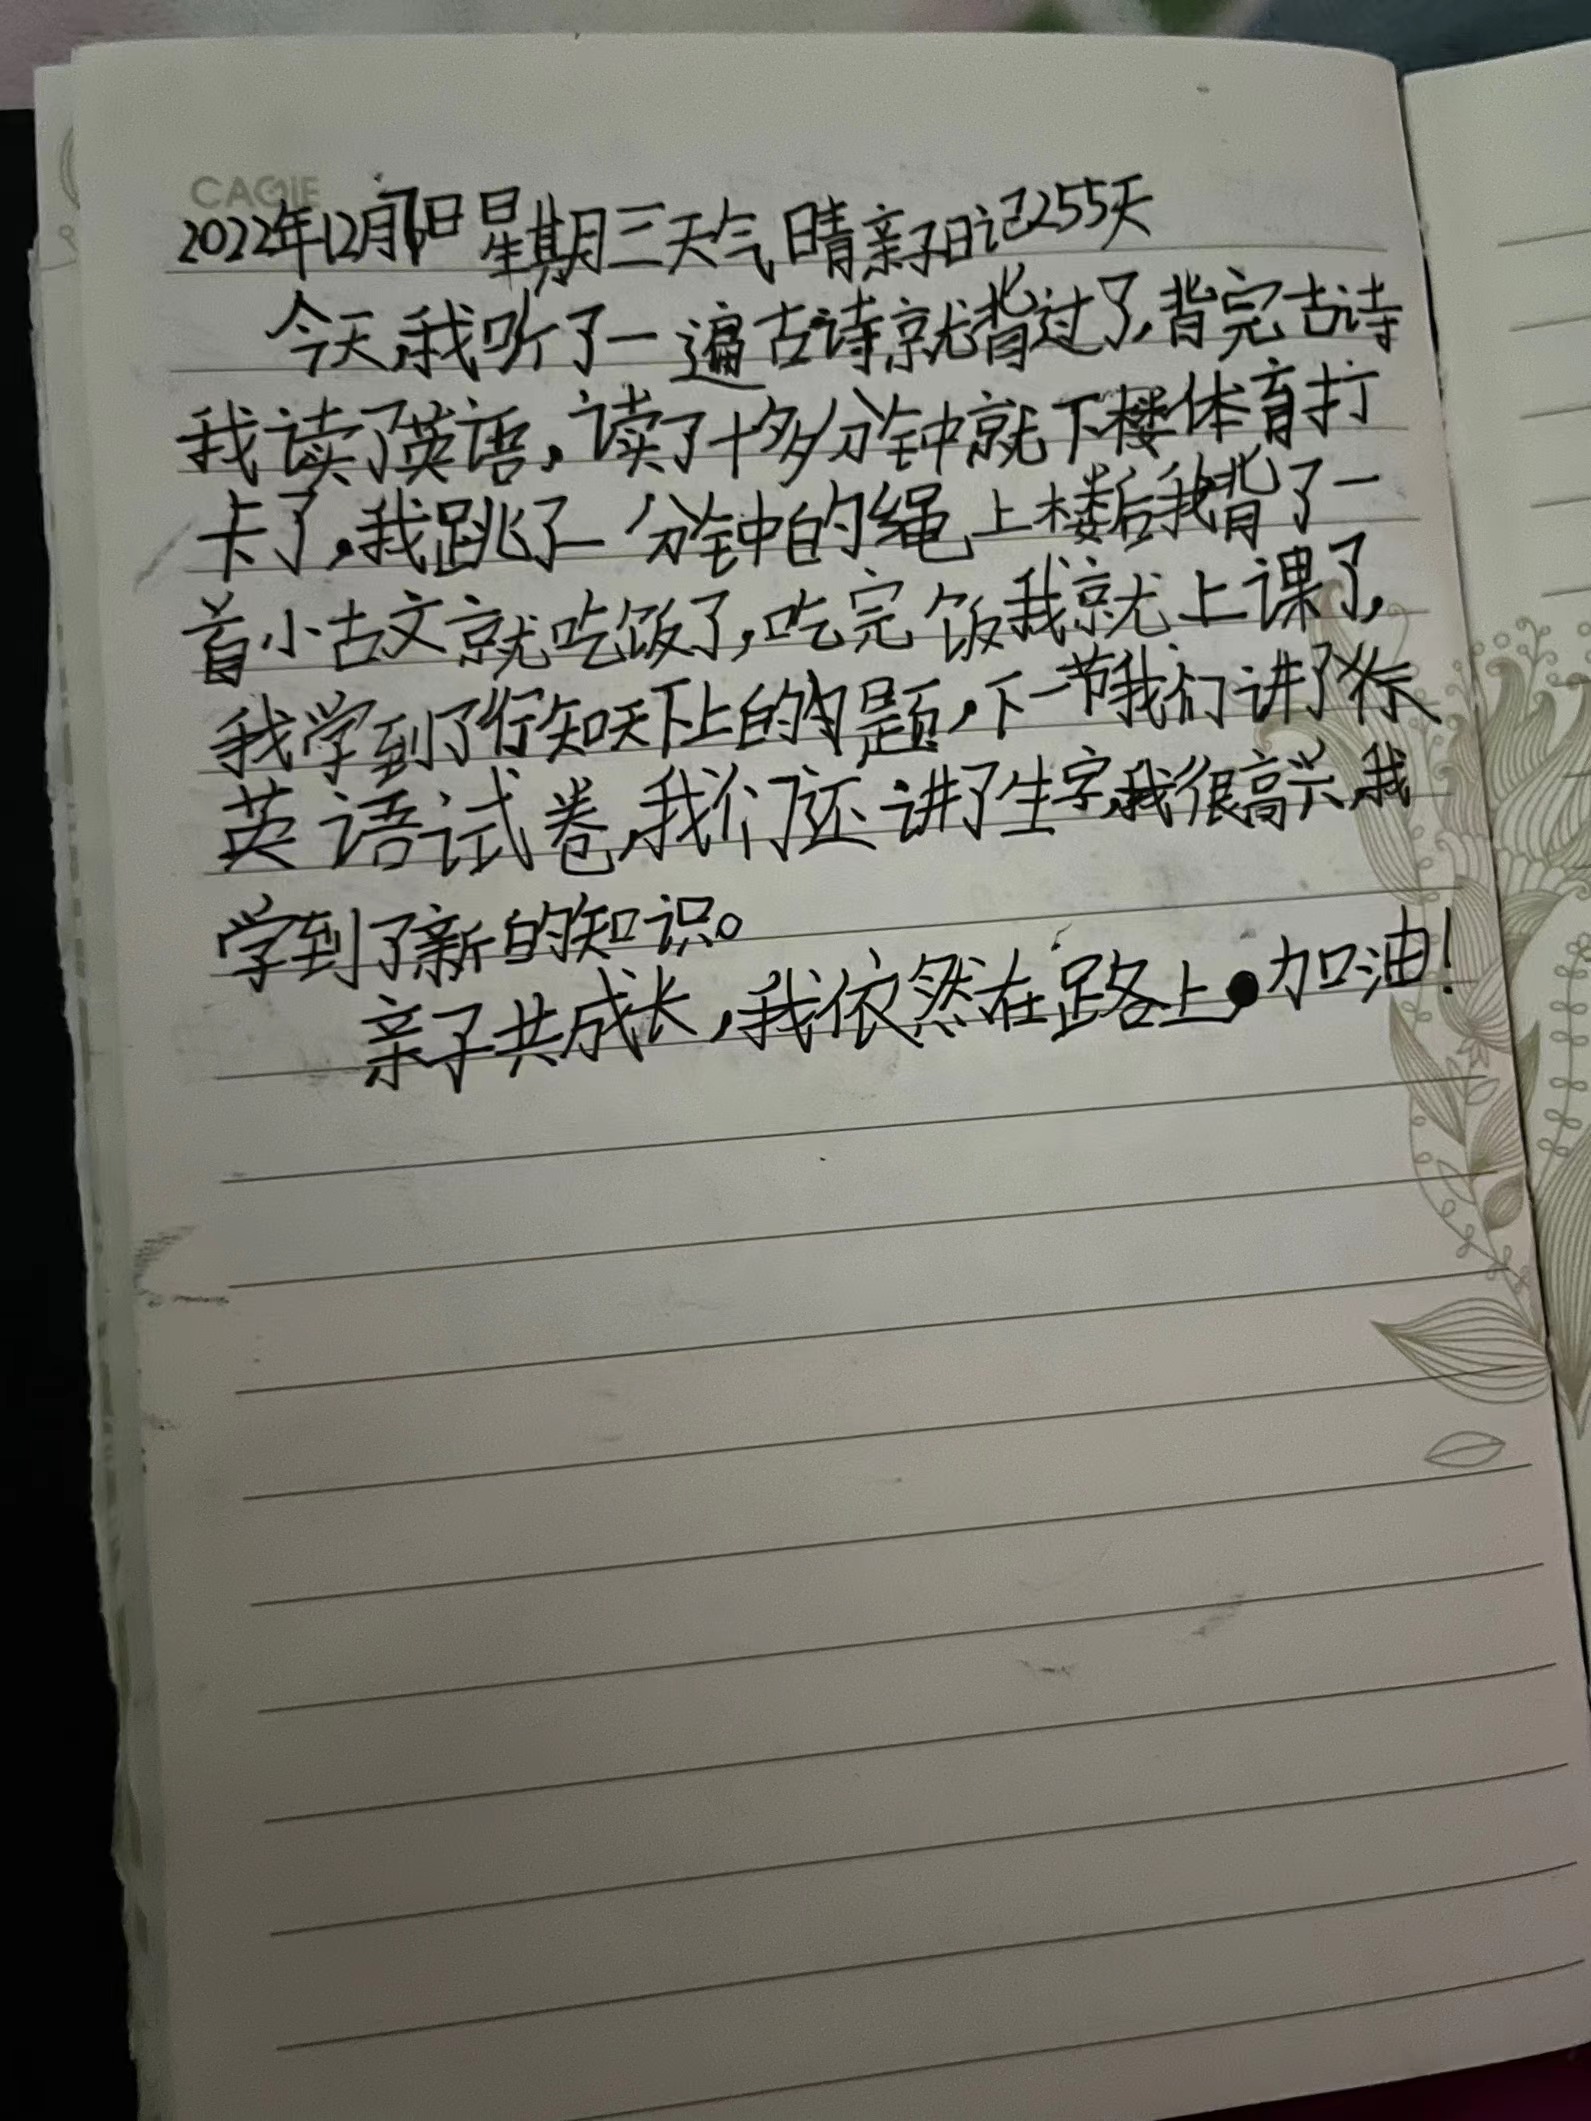 CAGIE
2022年12月7日星期三天气晴亲子日记255天
今天,我听了一遍古诗就背过了,背完古诗
我读了英语,读了十多分钟就下楼体育打
卡了,我跳了一分钟的绳上楼后我背了一
首小古文就吃饭了,吃完饭我就上课了,
我学到了行知天下上的的题,下一节我们讲了
英语试卷,我们还讲了生字,我很高兴,我
学到了新的知识。
亲子共成长,我依然在路上,加油!